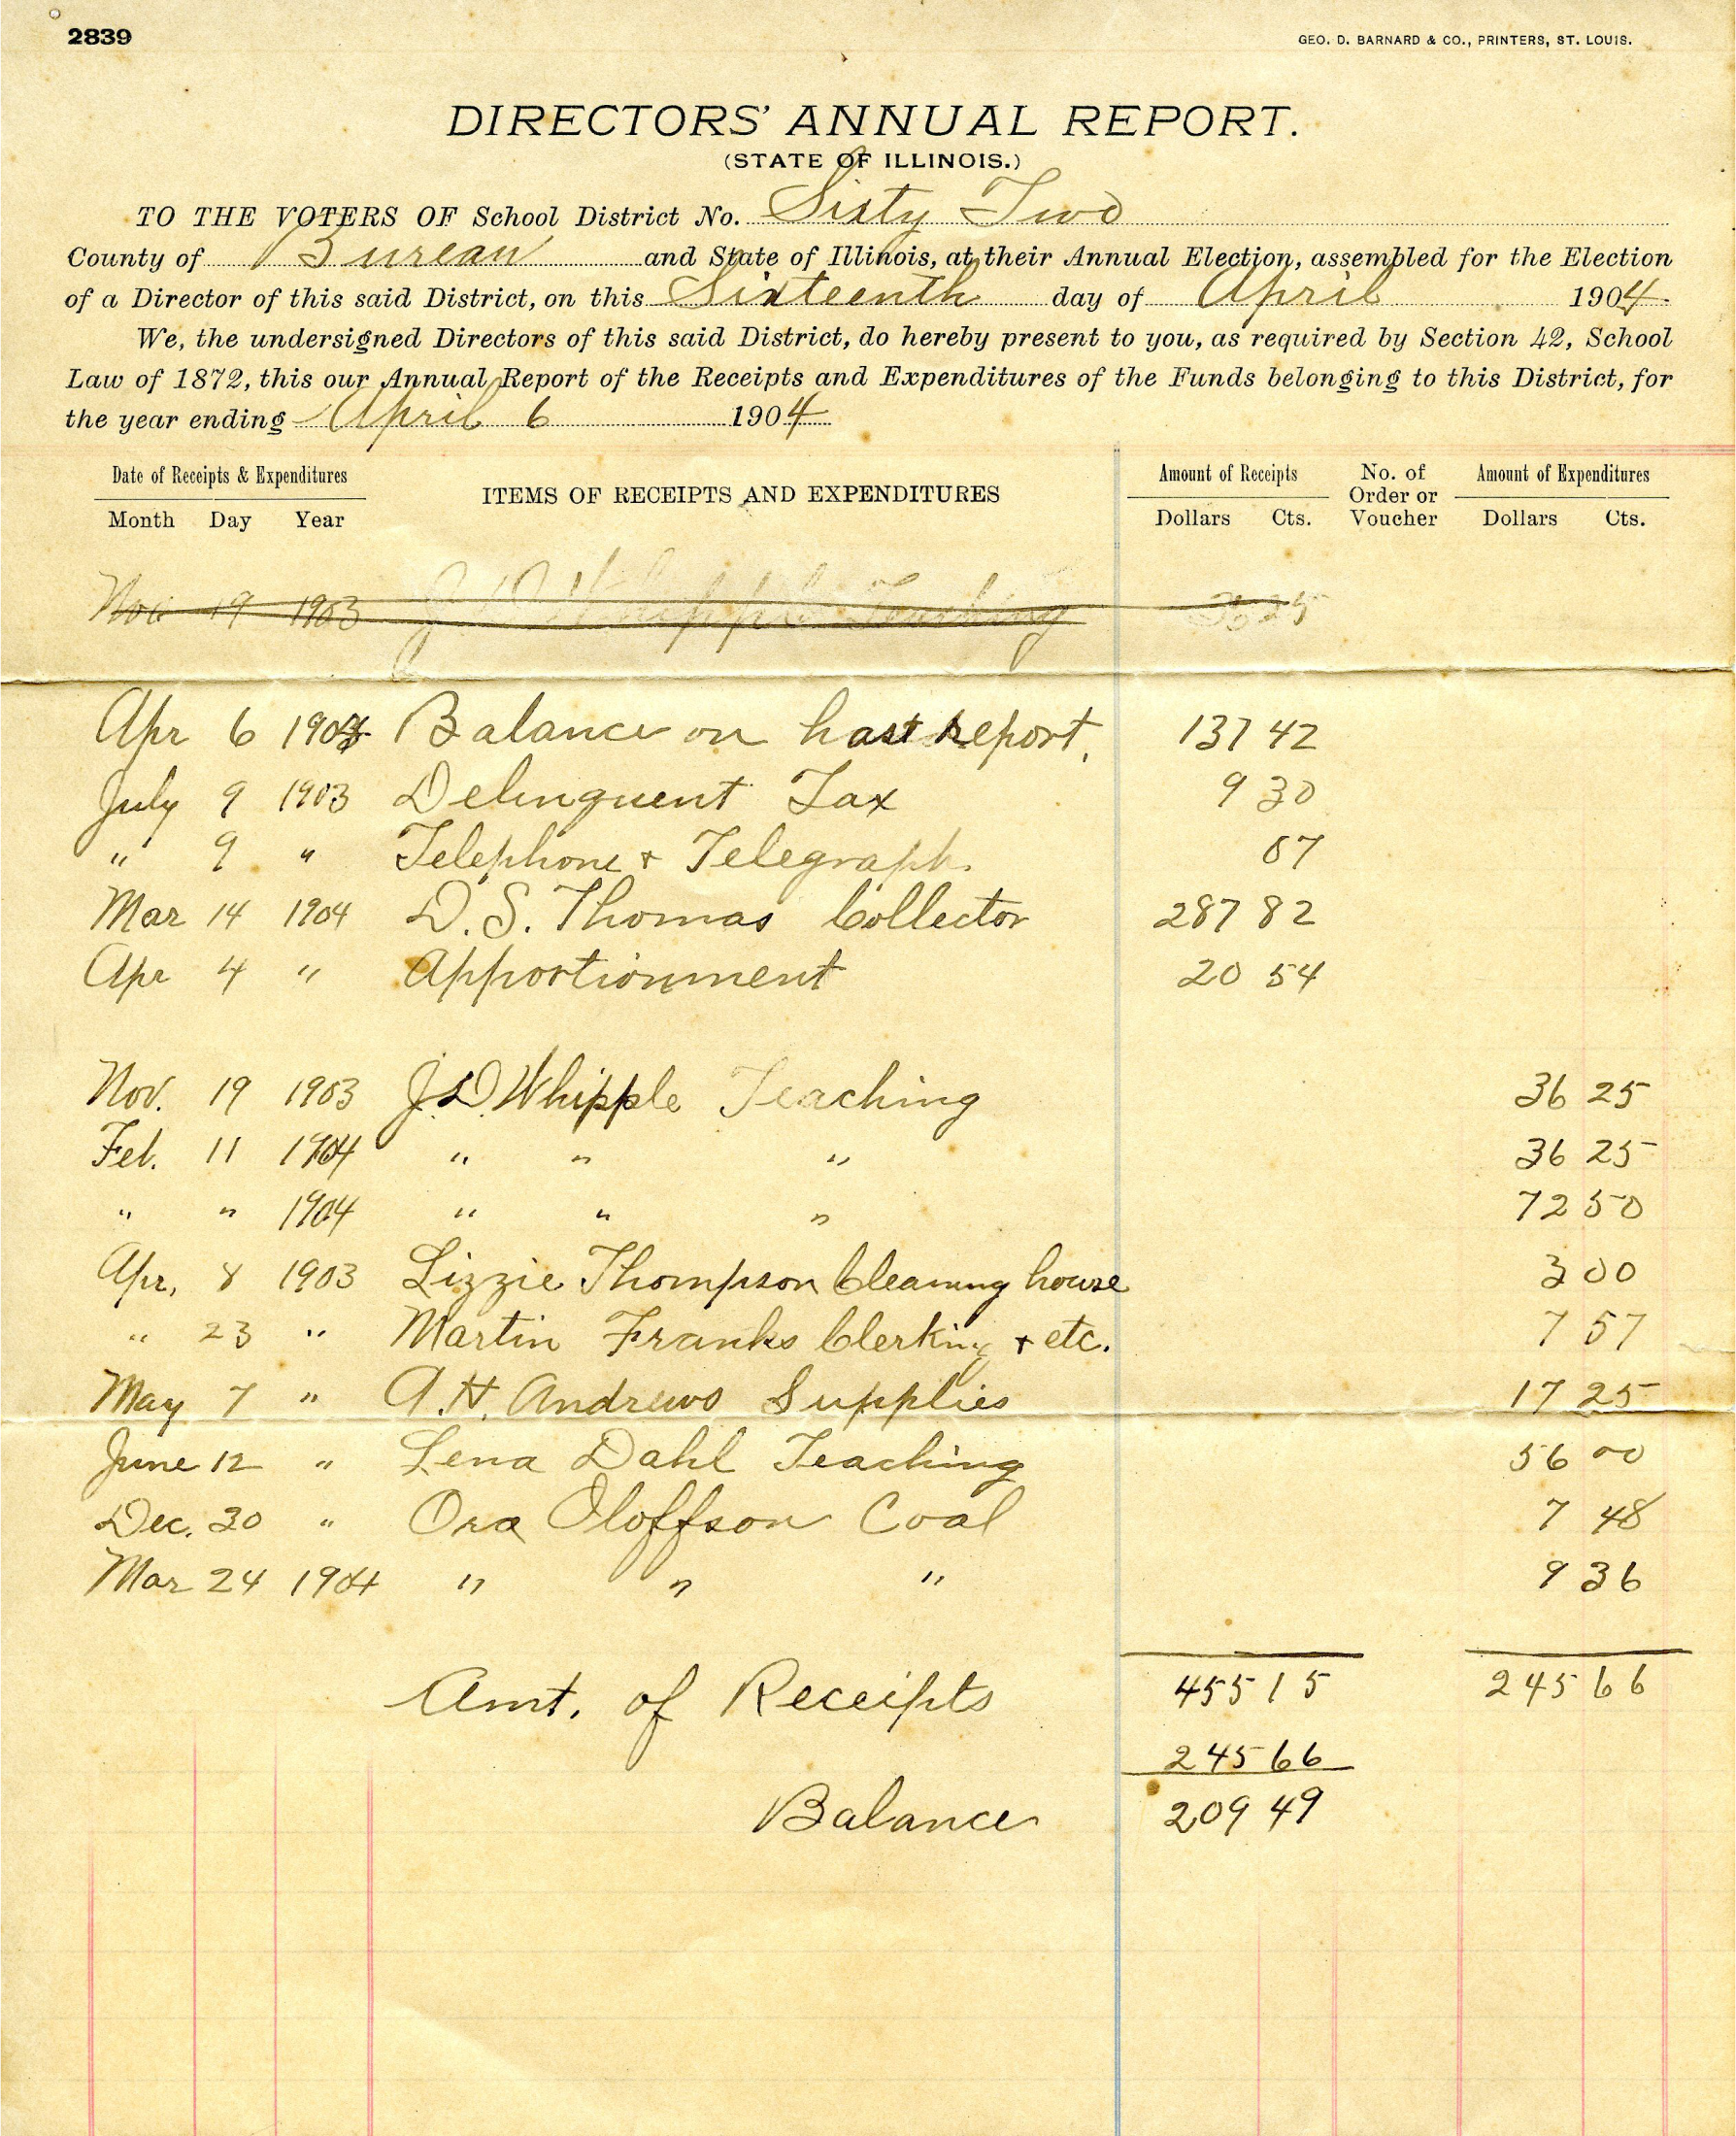 2839
GEO. D. BARNARD & CO., PRINTERS, ST. LOUIS.
DIRECTORS' ANNUAL REPORT.
(STATE OF ILLINOIS.)
TO THE VOTERS OF School District No. Sixty Two
County of Bureau and State of Illinois, at their Annual Election, assembled for the Election
of a Director of this said District, on this Sixteenth day of April 1904.
We, the undersigned Directors of this said District, do hereby present to you, as required by Section 42, School
Law of 1872, this our Annual Report of the Receipts and Expenditures of the Funds belonging to this District, for
the year ending April 6 1904
Date of Receipts & Expenditures ITEMS OF RECEIPTS AND EXPENDITURES Amount of Receipts No. of Order or Voucher Amount of Expenditures
Month Day Year Dollars Cts. Dollars Cts.
Nov 19 1903 J D Whipple Teaching 36 25
Apr 6 1903 Balance on hast report. 137 42
July 9 1903 Delinquent Tax 9 30
" 9 " Telephone + Telegraph. 07
Mar 14 1904 D. S. Thomas Collector 287 82
Apr 4 " Apportionment 20 54
Nov. 19 1903 J.D. Whipple Teaching 36 25
Feb. 11 1904 " " " 36 25
" " 1904 " " " 72 50
Apr, 8 1903 Lizzie Thompson Cleaning house 3 00
" 23 " Martin Franks Clerking + etc. 7 57
May 7 " A.H. Andrews Supplies 17 25
June 12 " Lena Dahl Teaching 56 00
Dec. 30 " Ora Oloffson Coal 7 48
Mar 24 1904 " " " 9 36
Amt. of Receipts 455 15 245 66
245 66
Balance 209 49